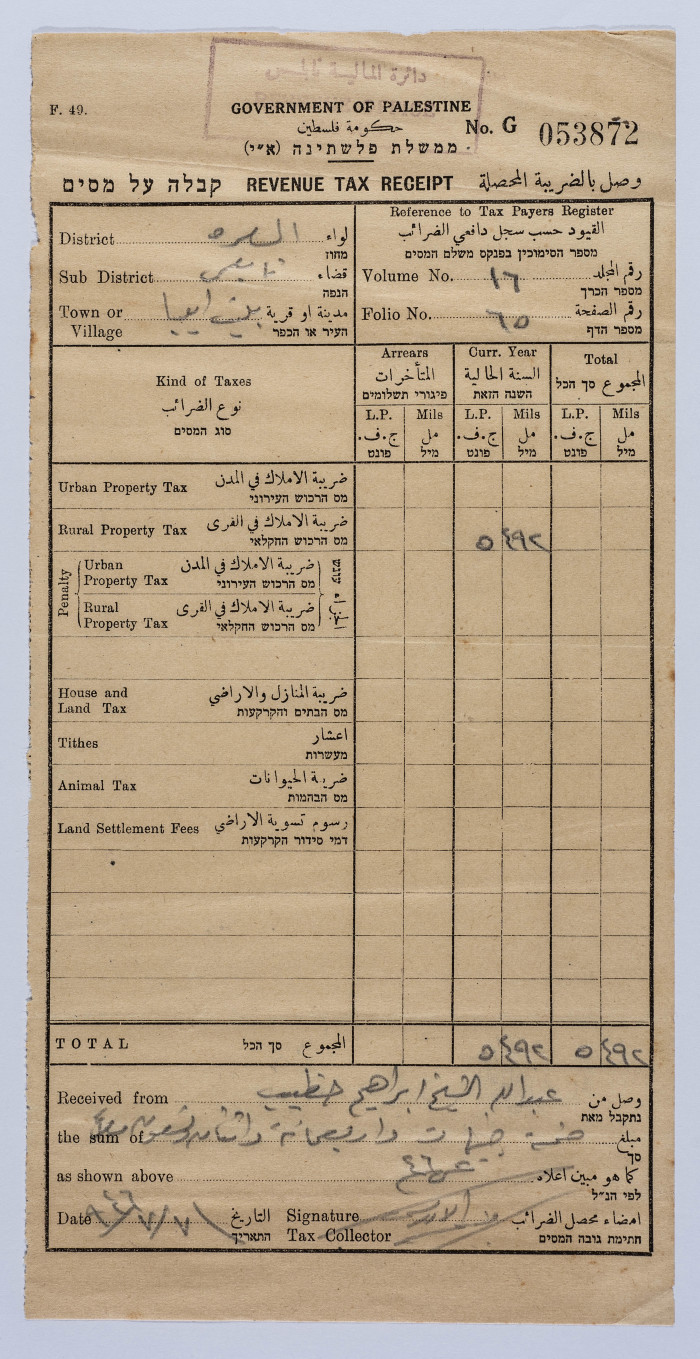 دائرة المالية نابلس
F. 49.
GOVERNMENT OF PALESTINE
حكومة فلسطين
ממשלת פלשתינה (א״י)
No. G 053872
קבלה על מסים REVENUE TAX RECEIPT وصل بالضريبة المحصلة
District السامره لواء
מחוז
Sub District نابلس قضاء
הנפה
Town or Village مدينة او قرية
העיר או הכפר
Reference to Tax Payers Register
القيود حسب سجل دافعي الضرائب
מספר הסימוכין בפנקס משלם המסים
Volume No. ١٦ رقم المجلد
מספר הכרך
Folio No. ٦٥ رقم الصفحة
מספר הדף
Kind of Taxes
نوع الضرائب
סוג המסים
Arrears
المتأخرات
פיגורי תשלומים
Curr. Year
السنة الحالية
השנה הזאת
Total
المجموع סך הכל
L.P. Mils L.P. Mils L.P. Mils
ج.ف. مل ج.ف. مل ج.ف. مل
פונט מיל פונט מיל פונט מיל
Urban Property Tax ضريبة الاملاك في المدن
מס הרכוש העירוני
Rural Property Tax ضريبة الاملاك في القرى
מס הרכוש החקלאי
٥ ٤٩٢
Penalty
Urban Property Tax ضريبة الاملاك في المدن
מס הרכוש העירוני
Rural Property Tax ضريبة الاملاك في القرى
מס הרכוש החקלאי
עונש
House and Land Tax ضريبة المنازل والاراضي
מס הבתים והקרקעות
Tithes اعشار
מעשרות
Animal Tax ضريبة الحيوانات
מס הבהמות
Land Settlement Fees رسوم تسوية الاراضي
דמי סידור הקרקעות
TOTAL סך הכל المجموع ٥ ٤٩٢ ٥ ٤٩٢
Received from عبدالله الشيخ ابراهيم خطيب وصل من
נתקבל מאת
the sum of خمسة جنيهات واربعمائة واثنان وتسعون ملا مبلغ
סך
as shown above كما هو مبين اعلاه
לפי הנ״ל
Date التاريخ
התאריך
Signature Tax Collector امضاء محصل الضرائب
חתימת גובה המסים